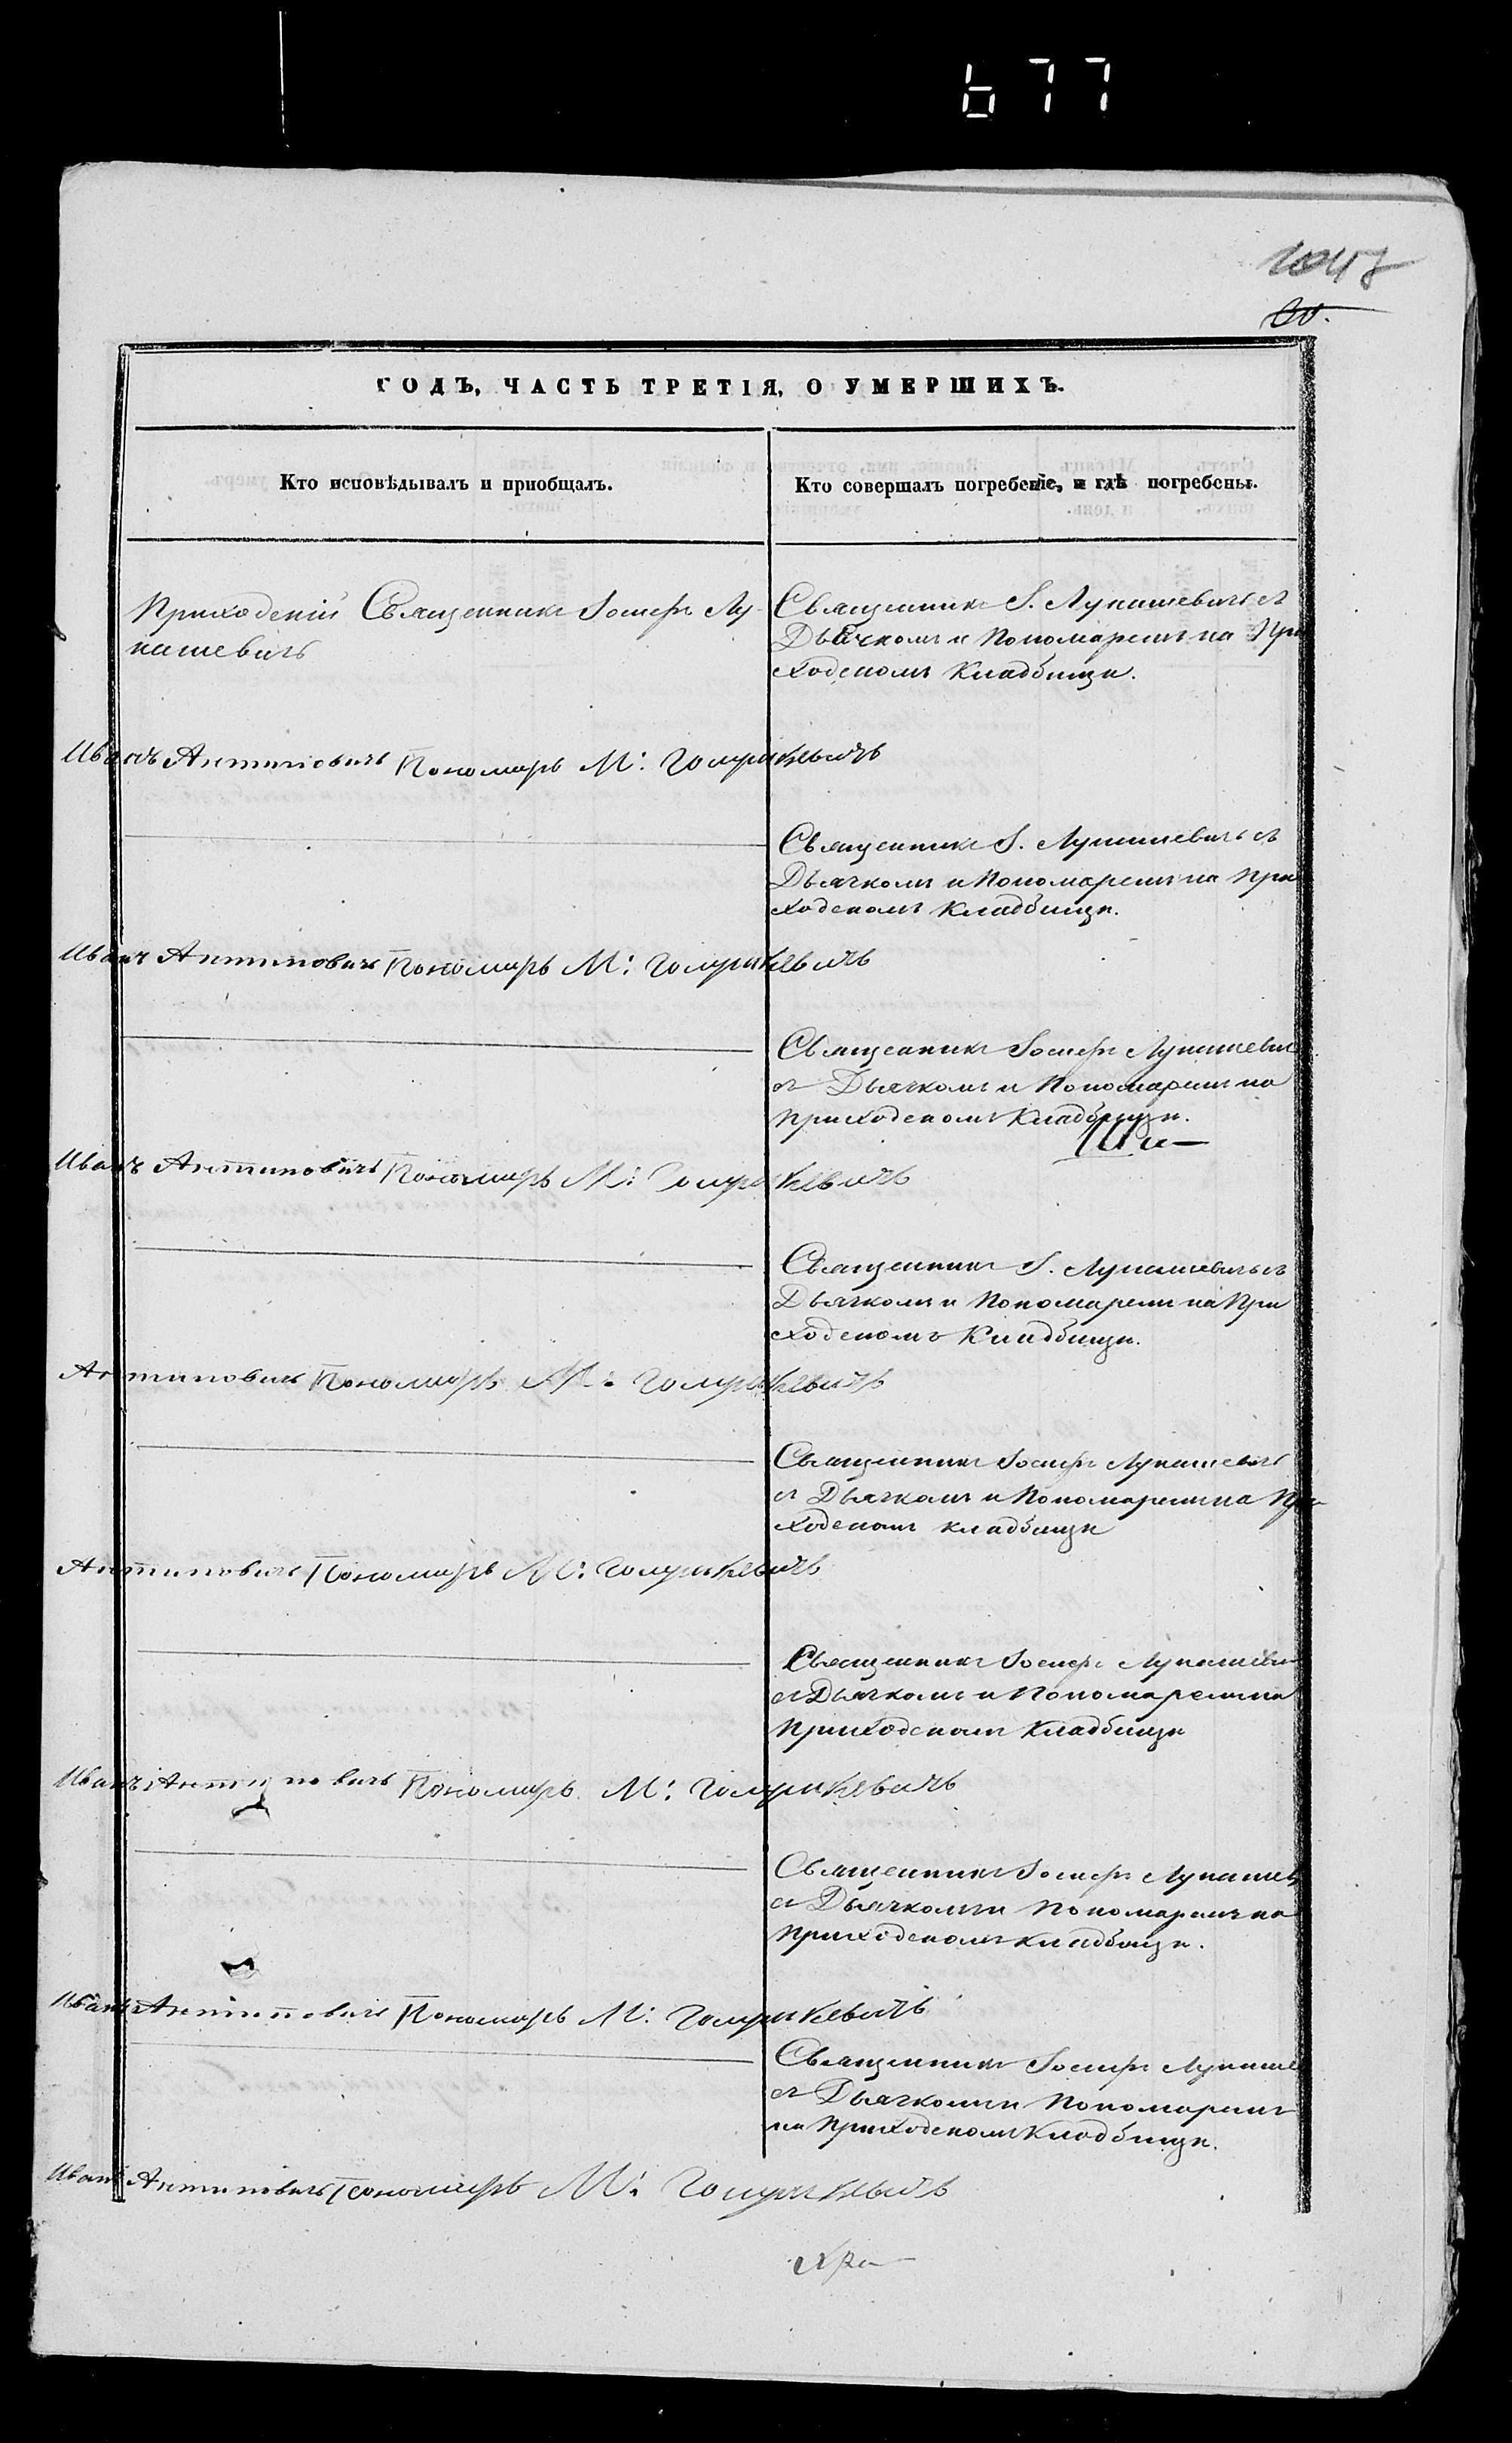 677
1047
30.
ГОДЪ, ЧАСТЬ ТРЕТІЯ, О УМЕРШИХЪ.
Кто исповѣдывалъ и пріобщалъ.
Кто совершалъ погребеніе, и гдѣ погребены.
Приходскій Священникъ Іосифъ Лу-
кашевичъ
Священникъ І. Лукашевичъ съ
Дьячкомъ и Пономаремъ на При
ходскомъ Кладбищѣ.
Иванъ Антиповичъ Пономарь М:
Священникъ І. Лукашевичъ съ
Дьячкомъ и Пономаремъ на При
ходскомъ Кладбищѣ.
Иванъ Антиповичъ Пономарь М:
Священникъ Іосифъ Лукашевич
съ Дьячкомъ и Пономаремъ на
Приходскомъ Кладбищѣ.
Иванъ Антиповичъ Пономарь М:
Священникъ І. Лукашевичъ съ
Дьячкомъ и Пономаремъ на При
ходскомъ Кладбищѣ.
Антиповичъ Пономарь М:
Священникъ Іосифъ Лукашевичъ
съ Дьячкомъ и Пономаремъ на При
ходскомъ кладбищѣ
Антиповичъ Пономарь М:
Священникъ Іосифъ Лукашеви
съ Дьячкомъ и Пономаремъ на
Приходскомъ Кладбищѣ
Иванъ Антиповичъ Пономарь М:
Священникъ Іосифъ Лукашев
съ Дьячкомъ и Пономаремъ на
Приходскомъ Кладбищѣ.
Иванъ Антиповичъ Пономарь М:
Священникъ Іосифъ Лукаше
съ Дьячкомъ и Пономаремъ
на Приходскомъ Кладбищѣ.
Иванъ Антиповичъ Пономарь М: